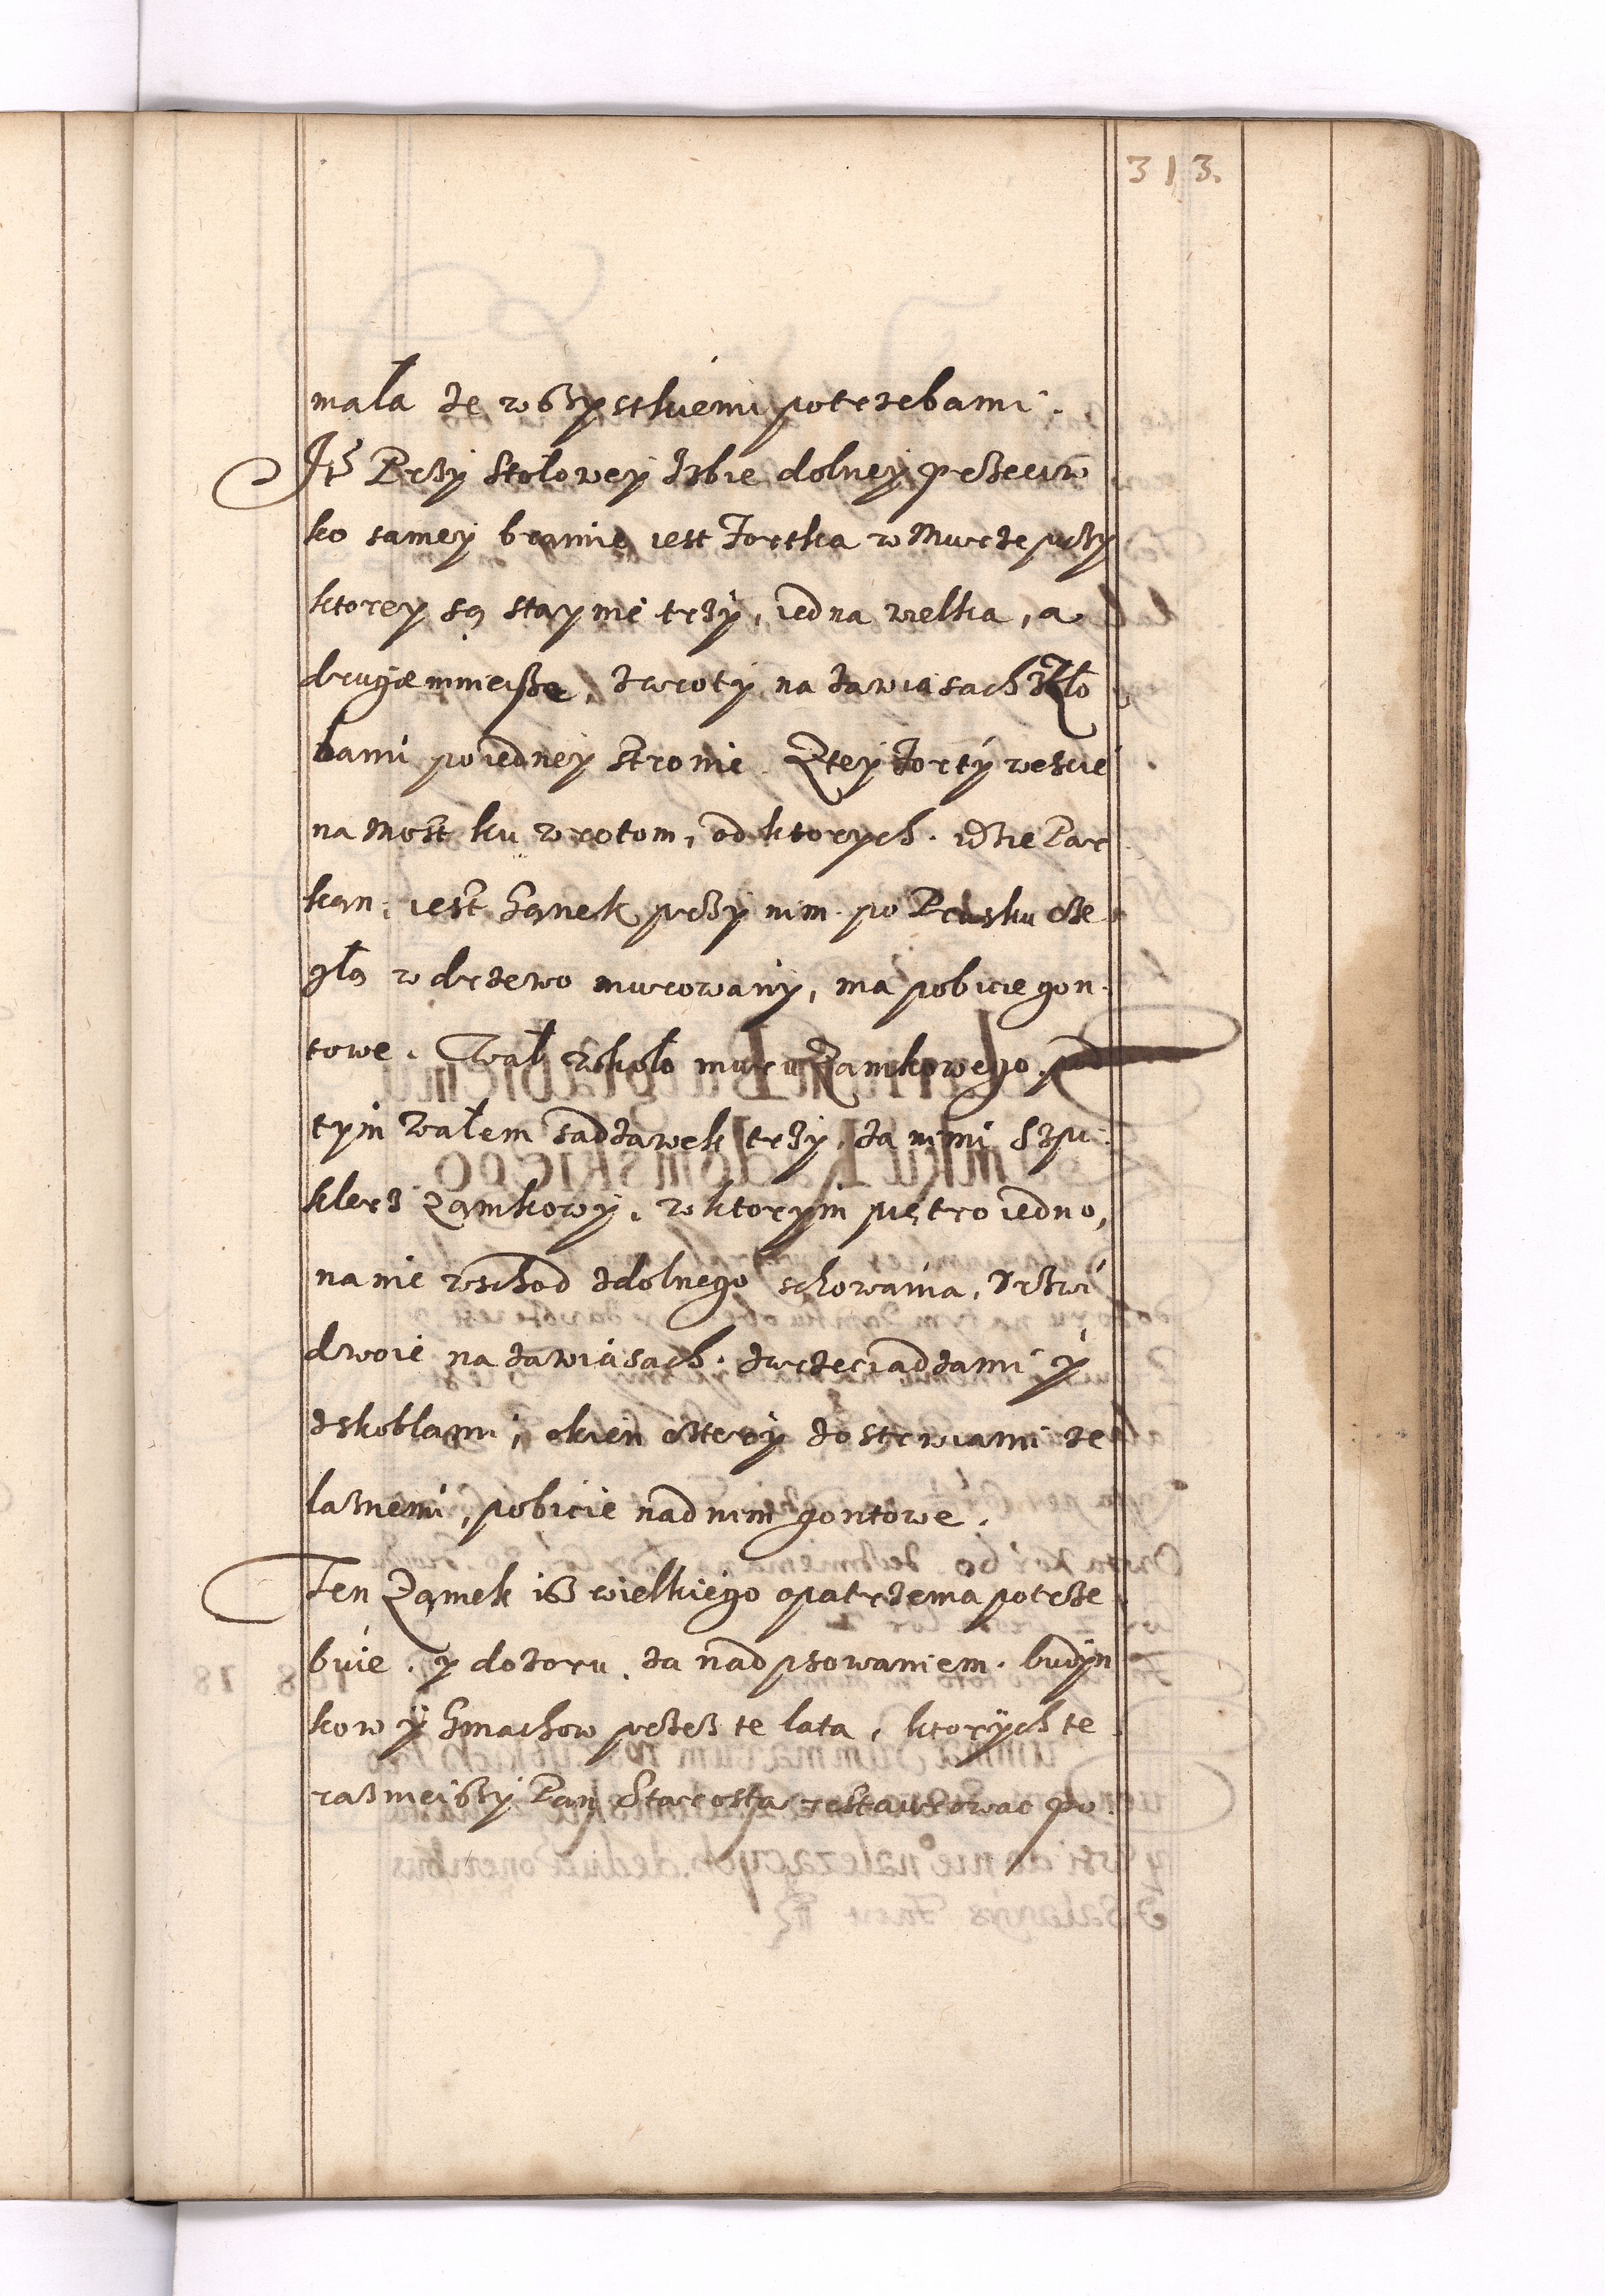 313.
mała ze wszystkiemi potrzebami.
Itē Przy Stołowey Izbie dolney przeciw
ko samey bramie iest Fortka w Murze przy
ktorey są staynie trzÿ, iedna welka, a
drugie mnieisze, zwroty na zawiasach Zło
bami poiedney stronie Ztey Forty weście
na Most ku wrotom, od ktorych idzie Par
kan, iest Ganek przy nim po Prusku cze
głą w drzewo murowany, ma pobicie gon
towe. Wał wkoło muru Zamkowego, pod
tym wałem sadzawek trzy, za nimi Szpi
klerz Zamkowy, w ktorym piętro iedno,
na nie wschod zdolnego schowania, Drzwi
dwoie na zawiasach, zwrzeciadzami y
zskoblami, okien cztery zostrwiami że
laznemi, pobicie nad nim gontowe.
Ten Zamek isz wielkiego opatrzenia potrze
buie, y dozoru, za nadpsowaniem budÿn
kow ÿ Gmachow przez te lata, ktorÿch te
raznieiszy Pan Starosta restaurowac po